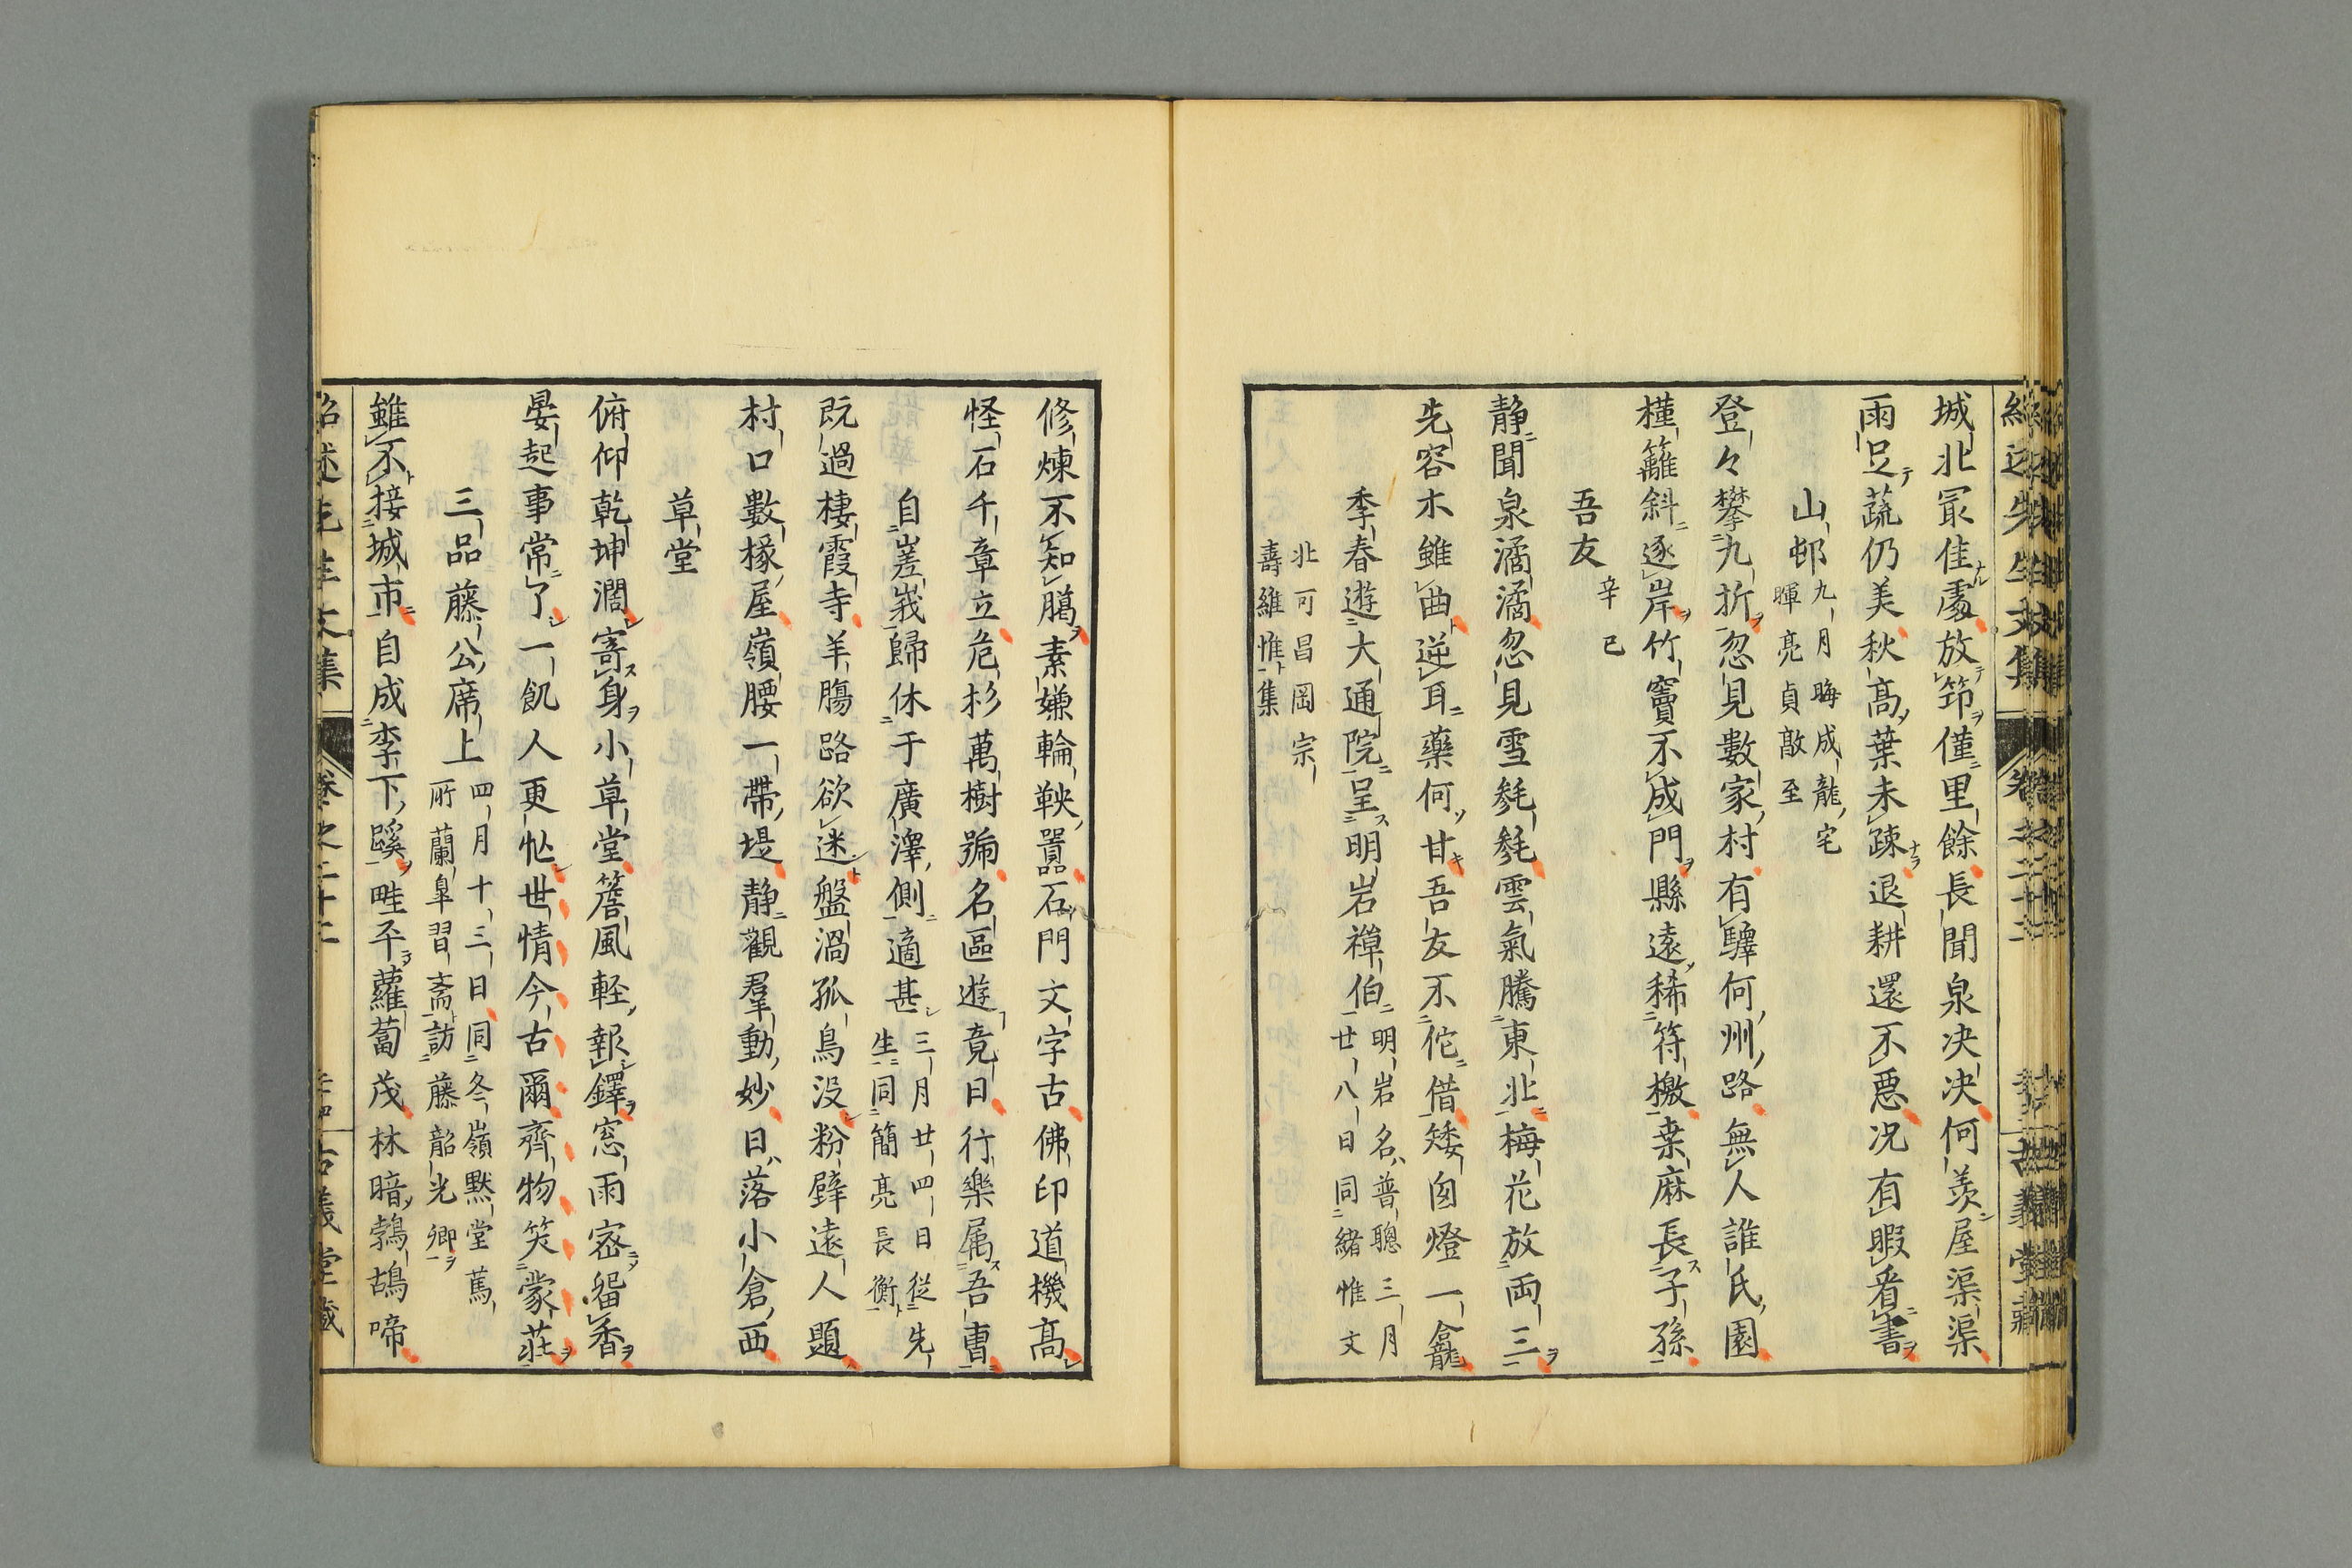 城北冣佳處放笻僅里餘長聞泉决决何羨屋渠渠
雨足蔬仍美秋髙葉未疎退耕還不惡况有暇看書
山邨九月晦成龍宅
暉亮貞敵至
登々攀九折忽見數家村有驛何州路無人誰氏園
槿籬斜逐岸竹竇不成門縣遠稀符檄桒麻長子孫
吾友辛巳
静聞泉潏潏忽見雪毿毿雲氣騰東北梅花放両三
先容木雖曲逆耳藥何甘吾友不佗借矮囱燈一龕
季春遊大通院呈明岩禅伯明岩名普聰三月
廿八日同緒惟文
北可昌岡宗
壽維惟集
修煉不知臈素嫌輪鞅嚣石門文字古佛印道機髙
怪石千章立危杉萬樹號名區遊竟日行樂属吾曹
自嵳峩歸休于廣澤側適甚三月廿四日従先
生同簡亮長衡
既過棲霞寺羊膓路欲迷盤渦孤鳥没粉壁遠人題
村口數椽屋嶺腰一帶堤静觀羣動妙日落小倉西
草堂
俯仰乾坤濶寄身小草堂簷風軽報鐸窓雨密畱香
晏起事常了一飢人更忙世情今古爾齊物笑蒙莊
三品藤公席上四月十三日同冬嶺黙堂蔦
所蘭臯習齋訪藤韶光卿
雖不接城市自成李下蹊畦平蘿蔔茂林暗鵓鴣啼
紹述先生文集 卷之二十二 古義堂藏